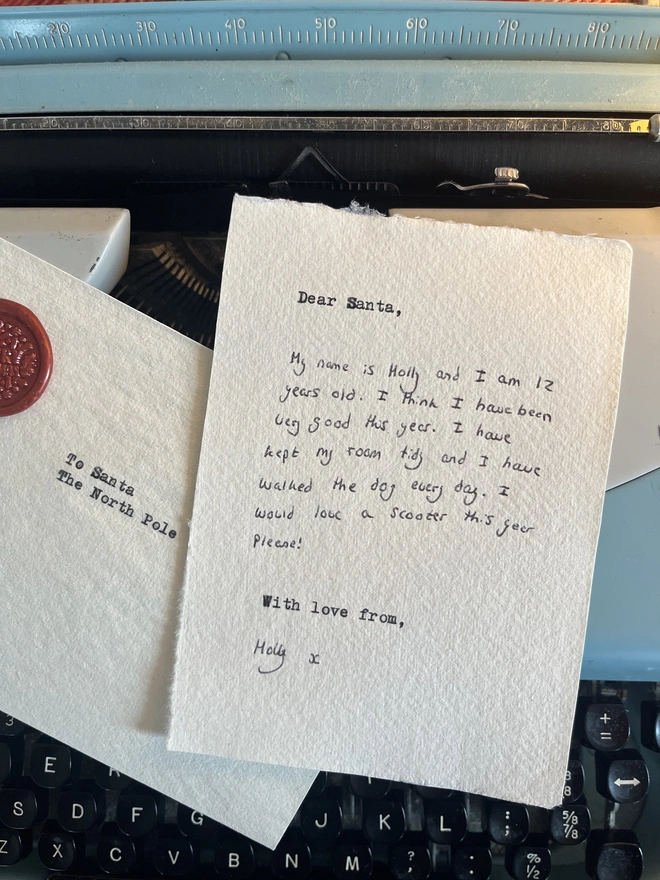 20 30 40 50 60 70 80
20 30 40 50 60 70 80
Dear Santa,
My name is Holly and I am 12
years old. I think I have been
very good this year. I have
kept my room tidy and I have
walked the dog every day. I
would love a scooter this year
please!
With love from,
Holly x
To Santa
The North Pole
3 + =
E R
S D F G J K L ; : 5/8 7/8
Z X C V B N M ? , : . % 1/2